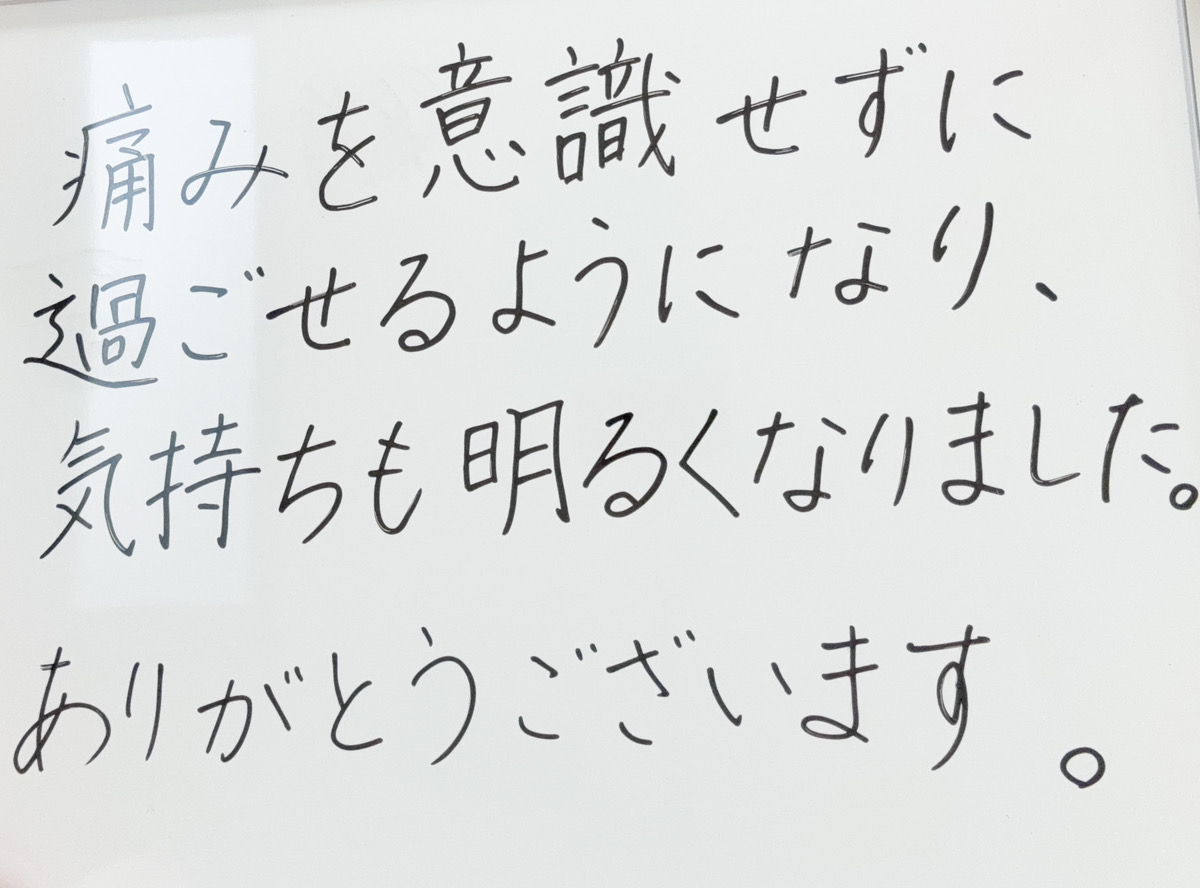 痛みを意識せずに
過ごせるようになり、
気持ちも明るくなりました。
ありがとうございます。